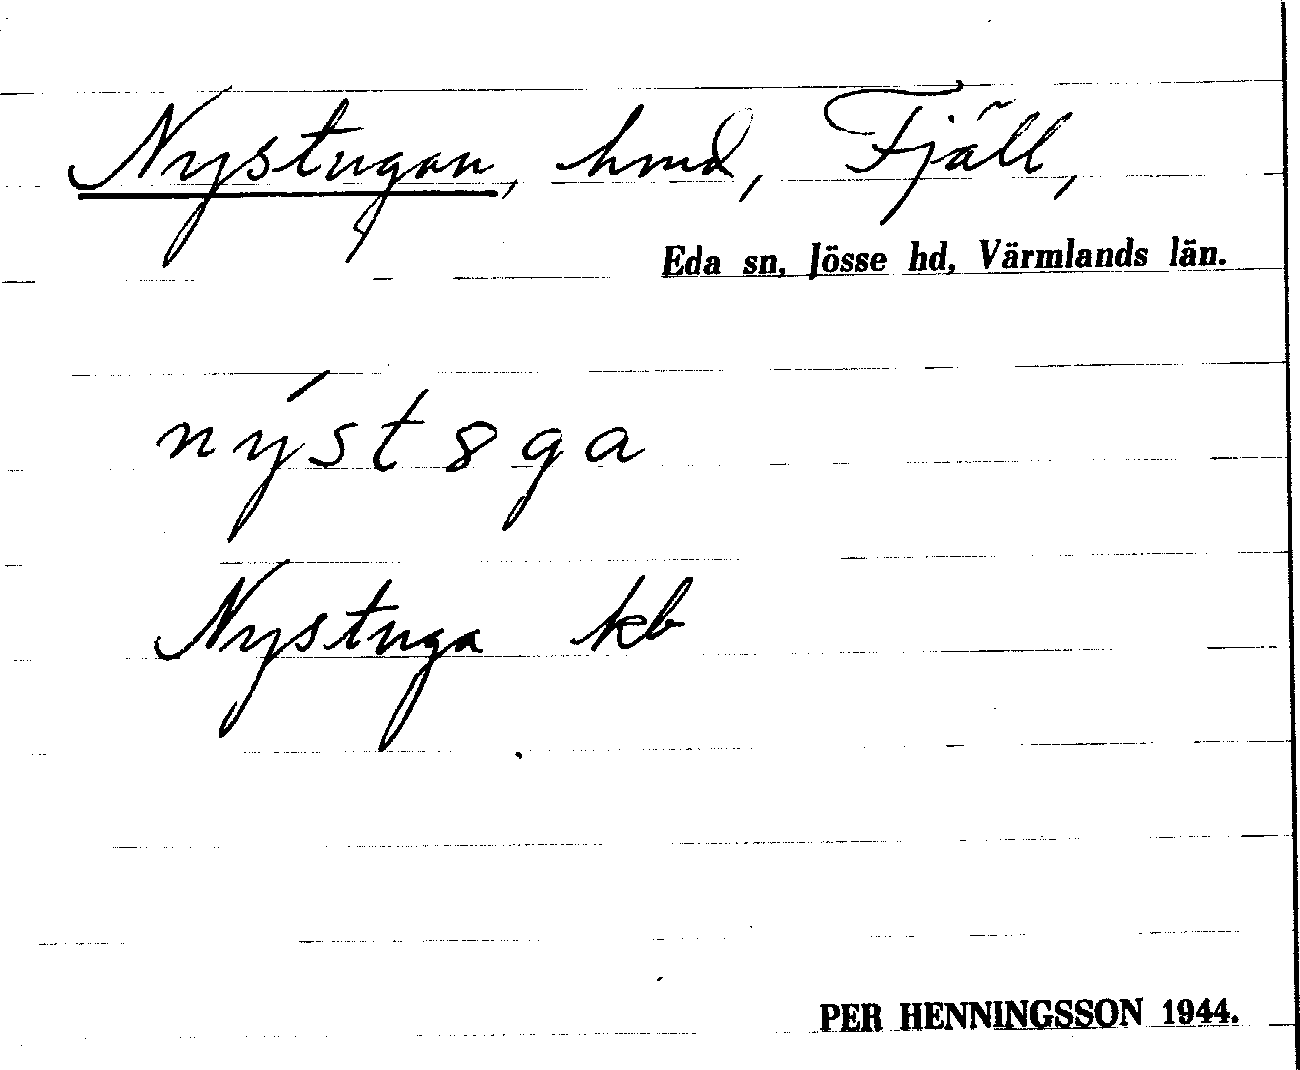 Nystugan, hmd, Fjäll,
Eda sn, Jösse hd, Värmlands län.
nýst8ga
Nystuga kb
PER HENNINGSSON 1944.